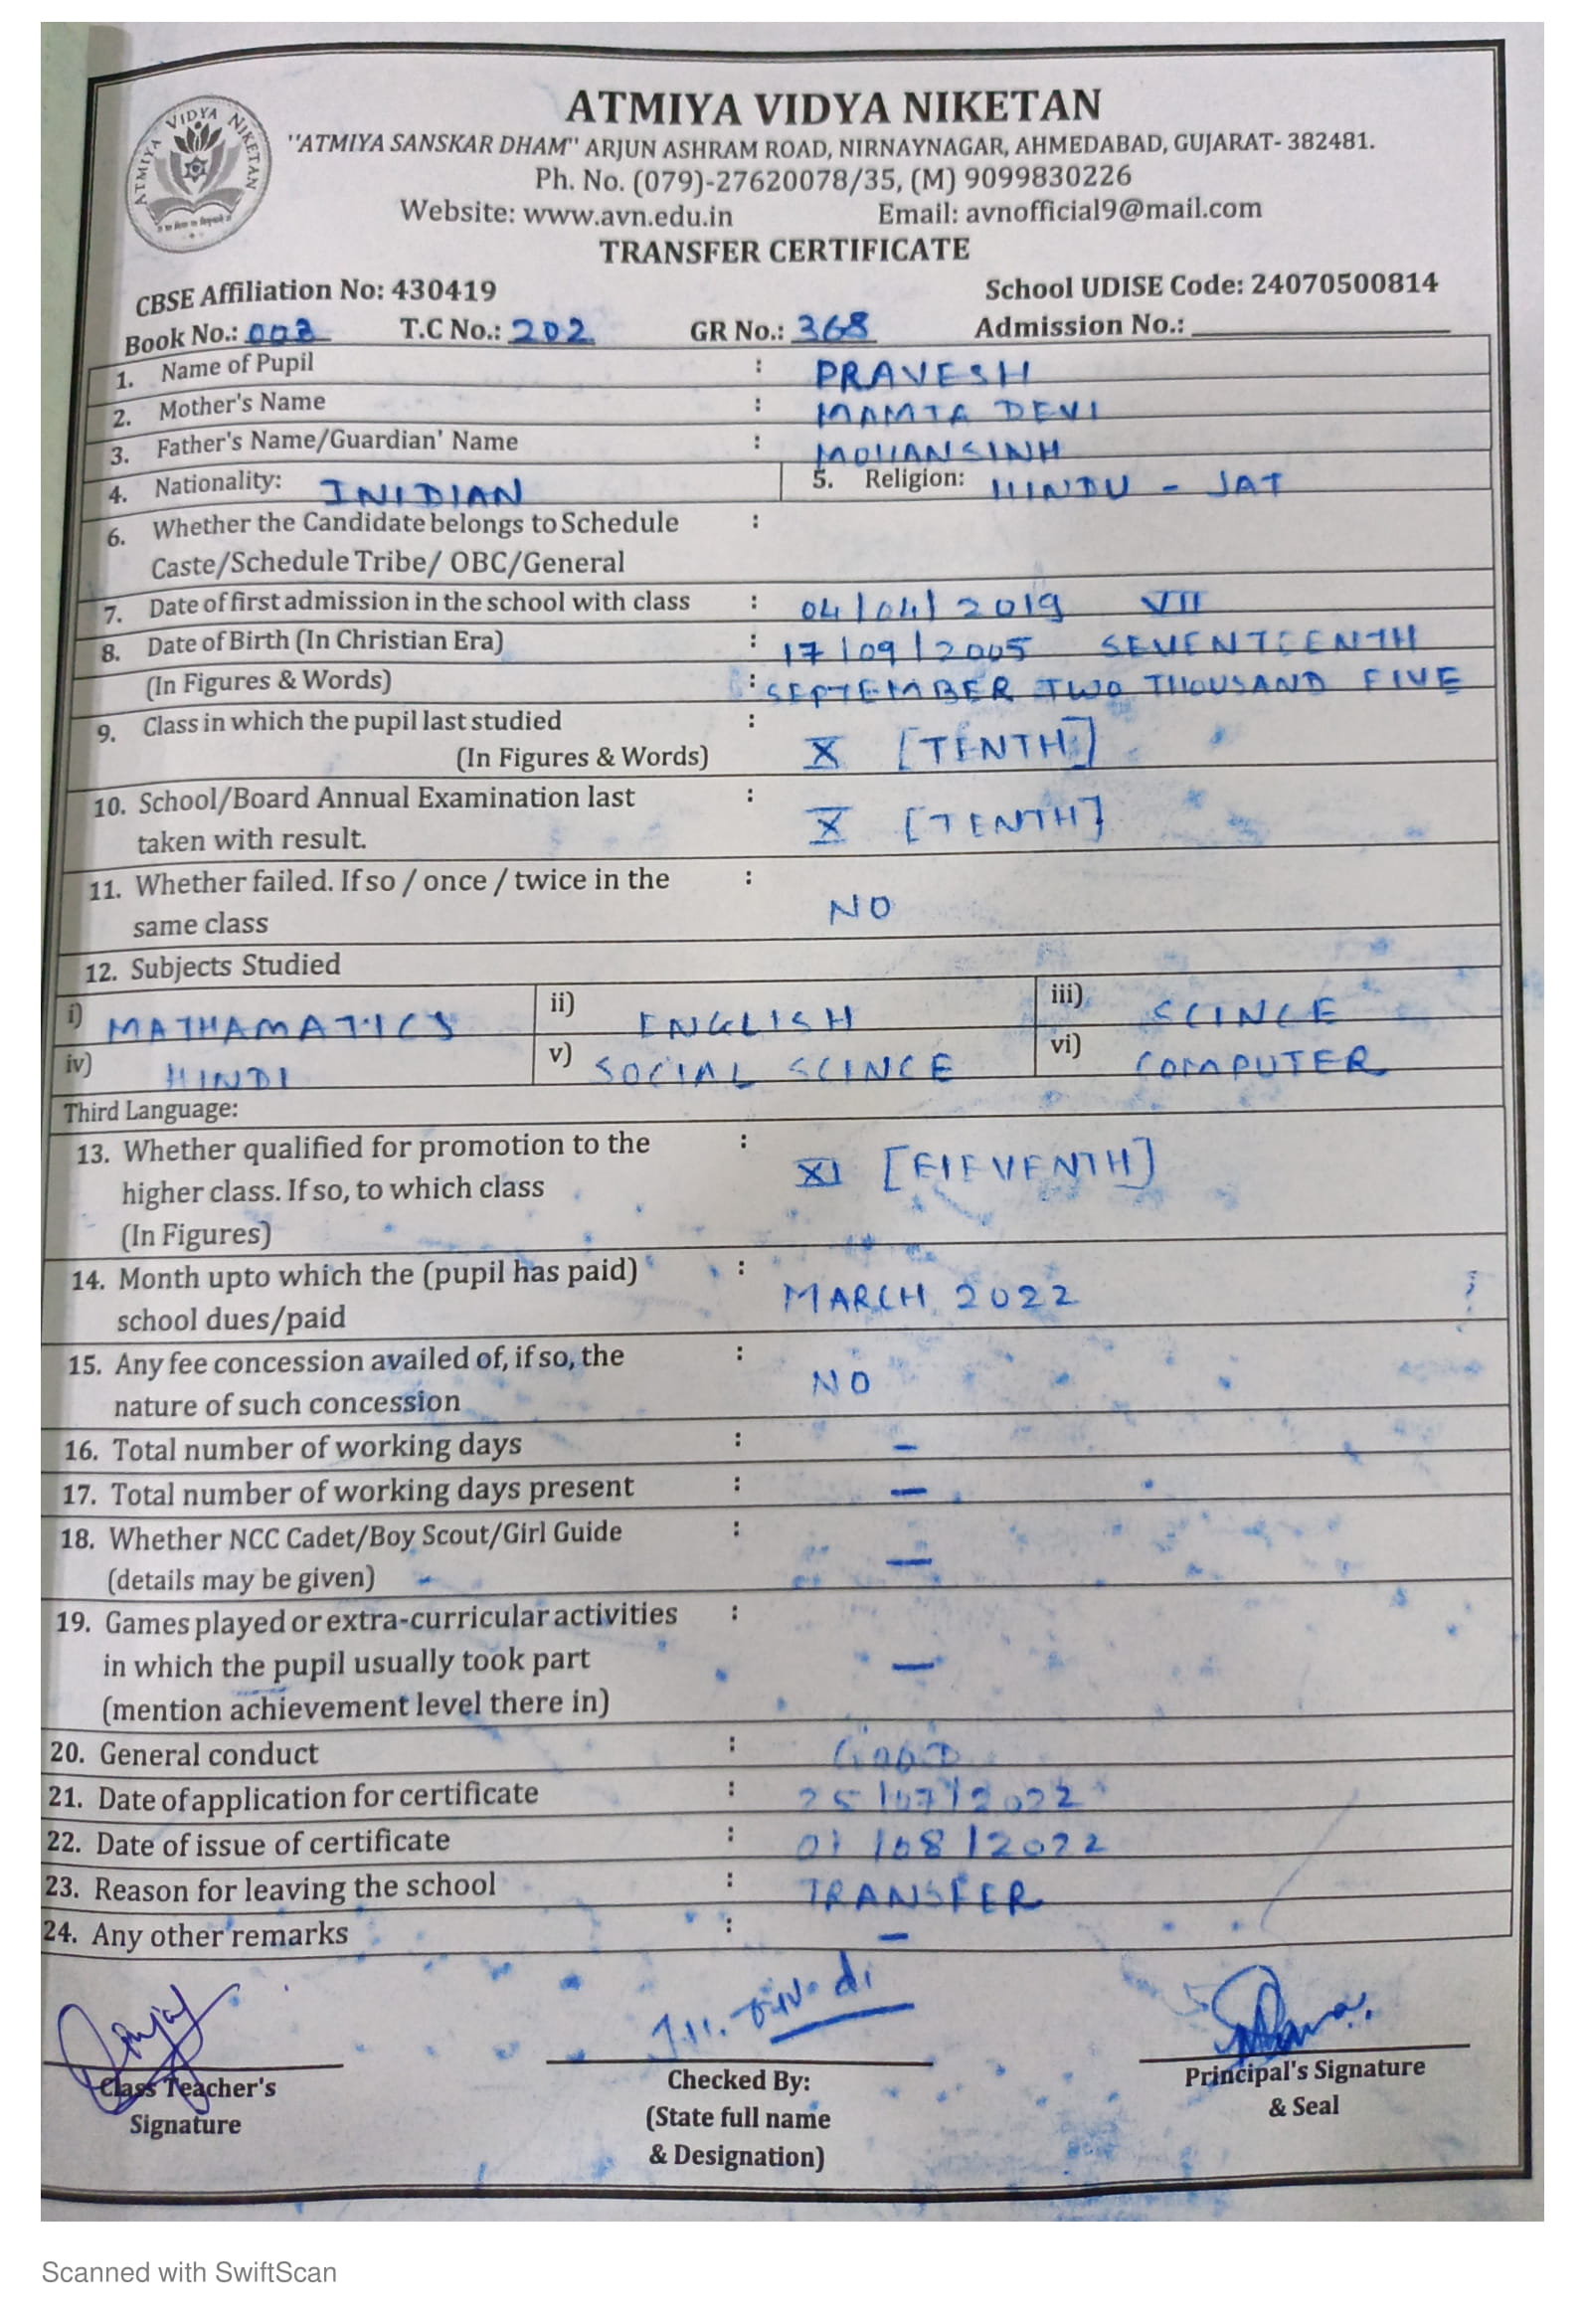 ATMIYA VIDYA NIKETAN
ATMIYA VIDYA NIKETAN
"ATMIYA SANSKAR DHAM" ARJUN ASHRAM ROAD, NIRNAYNAGAR, AHMEDABAD, GUJARAT- 382481.
Ph. No. (079)-27620078/35, (M) 9099830226
Website: www.avn.edu.in Email: avnofficial9@mail.com
TRANSFER CERTIFICATE
CBSE Affiliation No: 430419 School UDISE Code: 24070500814
Book No.: 003 T.C No.: 202 GR No.: 368 Admission No.:
1. Name of Pupil : PRAVESH
2. Mother's Name : MAMTA DEVI
3. Father's Name/Guardian' Name : MOHANSINH
4. Nationality: INIDIAN 5. Religion: HINDU - JAT
6. Whether the Candidate belongs to Schedule :
Caste/Schedule Tribe/ OBC/General
7. Date of first admission in the school with class : 04/04/2019 VII
8. Date of Birth (In Christian Era) : 17/09/2005 SEVENTEENTH
(In Figures & Words) : SEPTEMBER TWO THOUSAND FIVE
9. Class in which the pupil last studied :
(In Figures & Words) X [TENTH]
10. School/Board Annual Examination last :
taken with result. X [TENTH]
11. Whether failed. If so / once / twice in the :
same class NO
12. Subjects Studied
i) MATHAMATICS ii) ENGLISH iii) SCINCE
iv) HINDI v) SOCIAL SCINCE vi) COMPUTER
Third Language:
13. Whether qualified for promotion to the :
higher class. If so, to which class XI [ELEVENTH]
(In Figures)
14. Month upto which the (pupil has paid) :
school dues/paid MARCH 2022
15. Any fee concession availed of, if so, the :
nature of such concession NO
16. Total number of working days : -
17. Total number of working days present : -
18. Whether NCC Cadet/Boy Scout/Girl Guide :
(details may be given) -
19. Games played or extra-curricular activities :
in which the pupil usually took part -
(mention achievement level there in)
20. General conduct : GOOD
21. Date of application for certificate : 25/07/2022
22. Date of issue of certificate : 01/08/2022
23. Reason for leaving the school : TRANSFER
24. Any other remarks : -
Class Teacher's
Signature
Checked By:
(State full name
& Designation)
Principal's Signature
& Seal
Scanned with SwiftScan